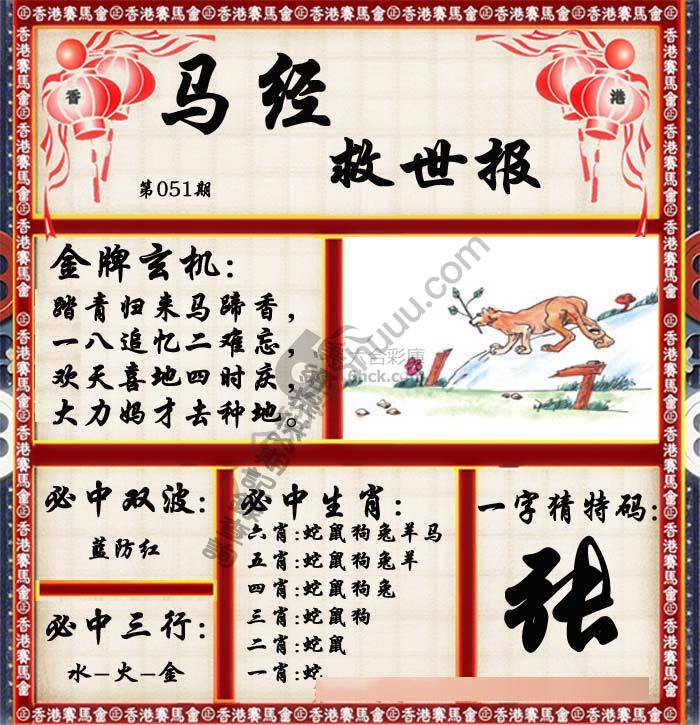 香港賽馬會㊣香港賽馬會㊣香港賽馬會㊣香港賽馬會㊣香港賽馬會㊣香港賽馬會
香 港
马经
救世报
第051期
金牌玄机:
踏青归来马蹄香,
一八追忆二难忘,
欢天喜地四时庆,
大力妈才去种地。
必中双波:
蓝防红
必中三行:
水-火-金
必中生肖:
六肖:蛇鼠狗兔羊马
五肖:蛇鼠狗兔羊
四肖:蛇鼠狗兔
三肖:蛇鼠狗
二肖:蛇鼠
一肖:蛇
一字猜特码:
张